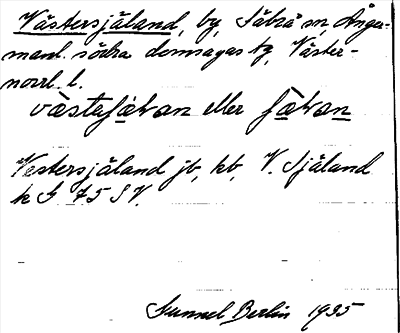 Västersjäland, by, Säbrå sn, Ånger-
manl. södra domsagas tg, Väster-
norrl. l.
eller
Vestersjäland jb, kb, V. Själand
k G 45 SV.
Gunnel Berlin 1935